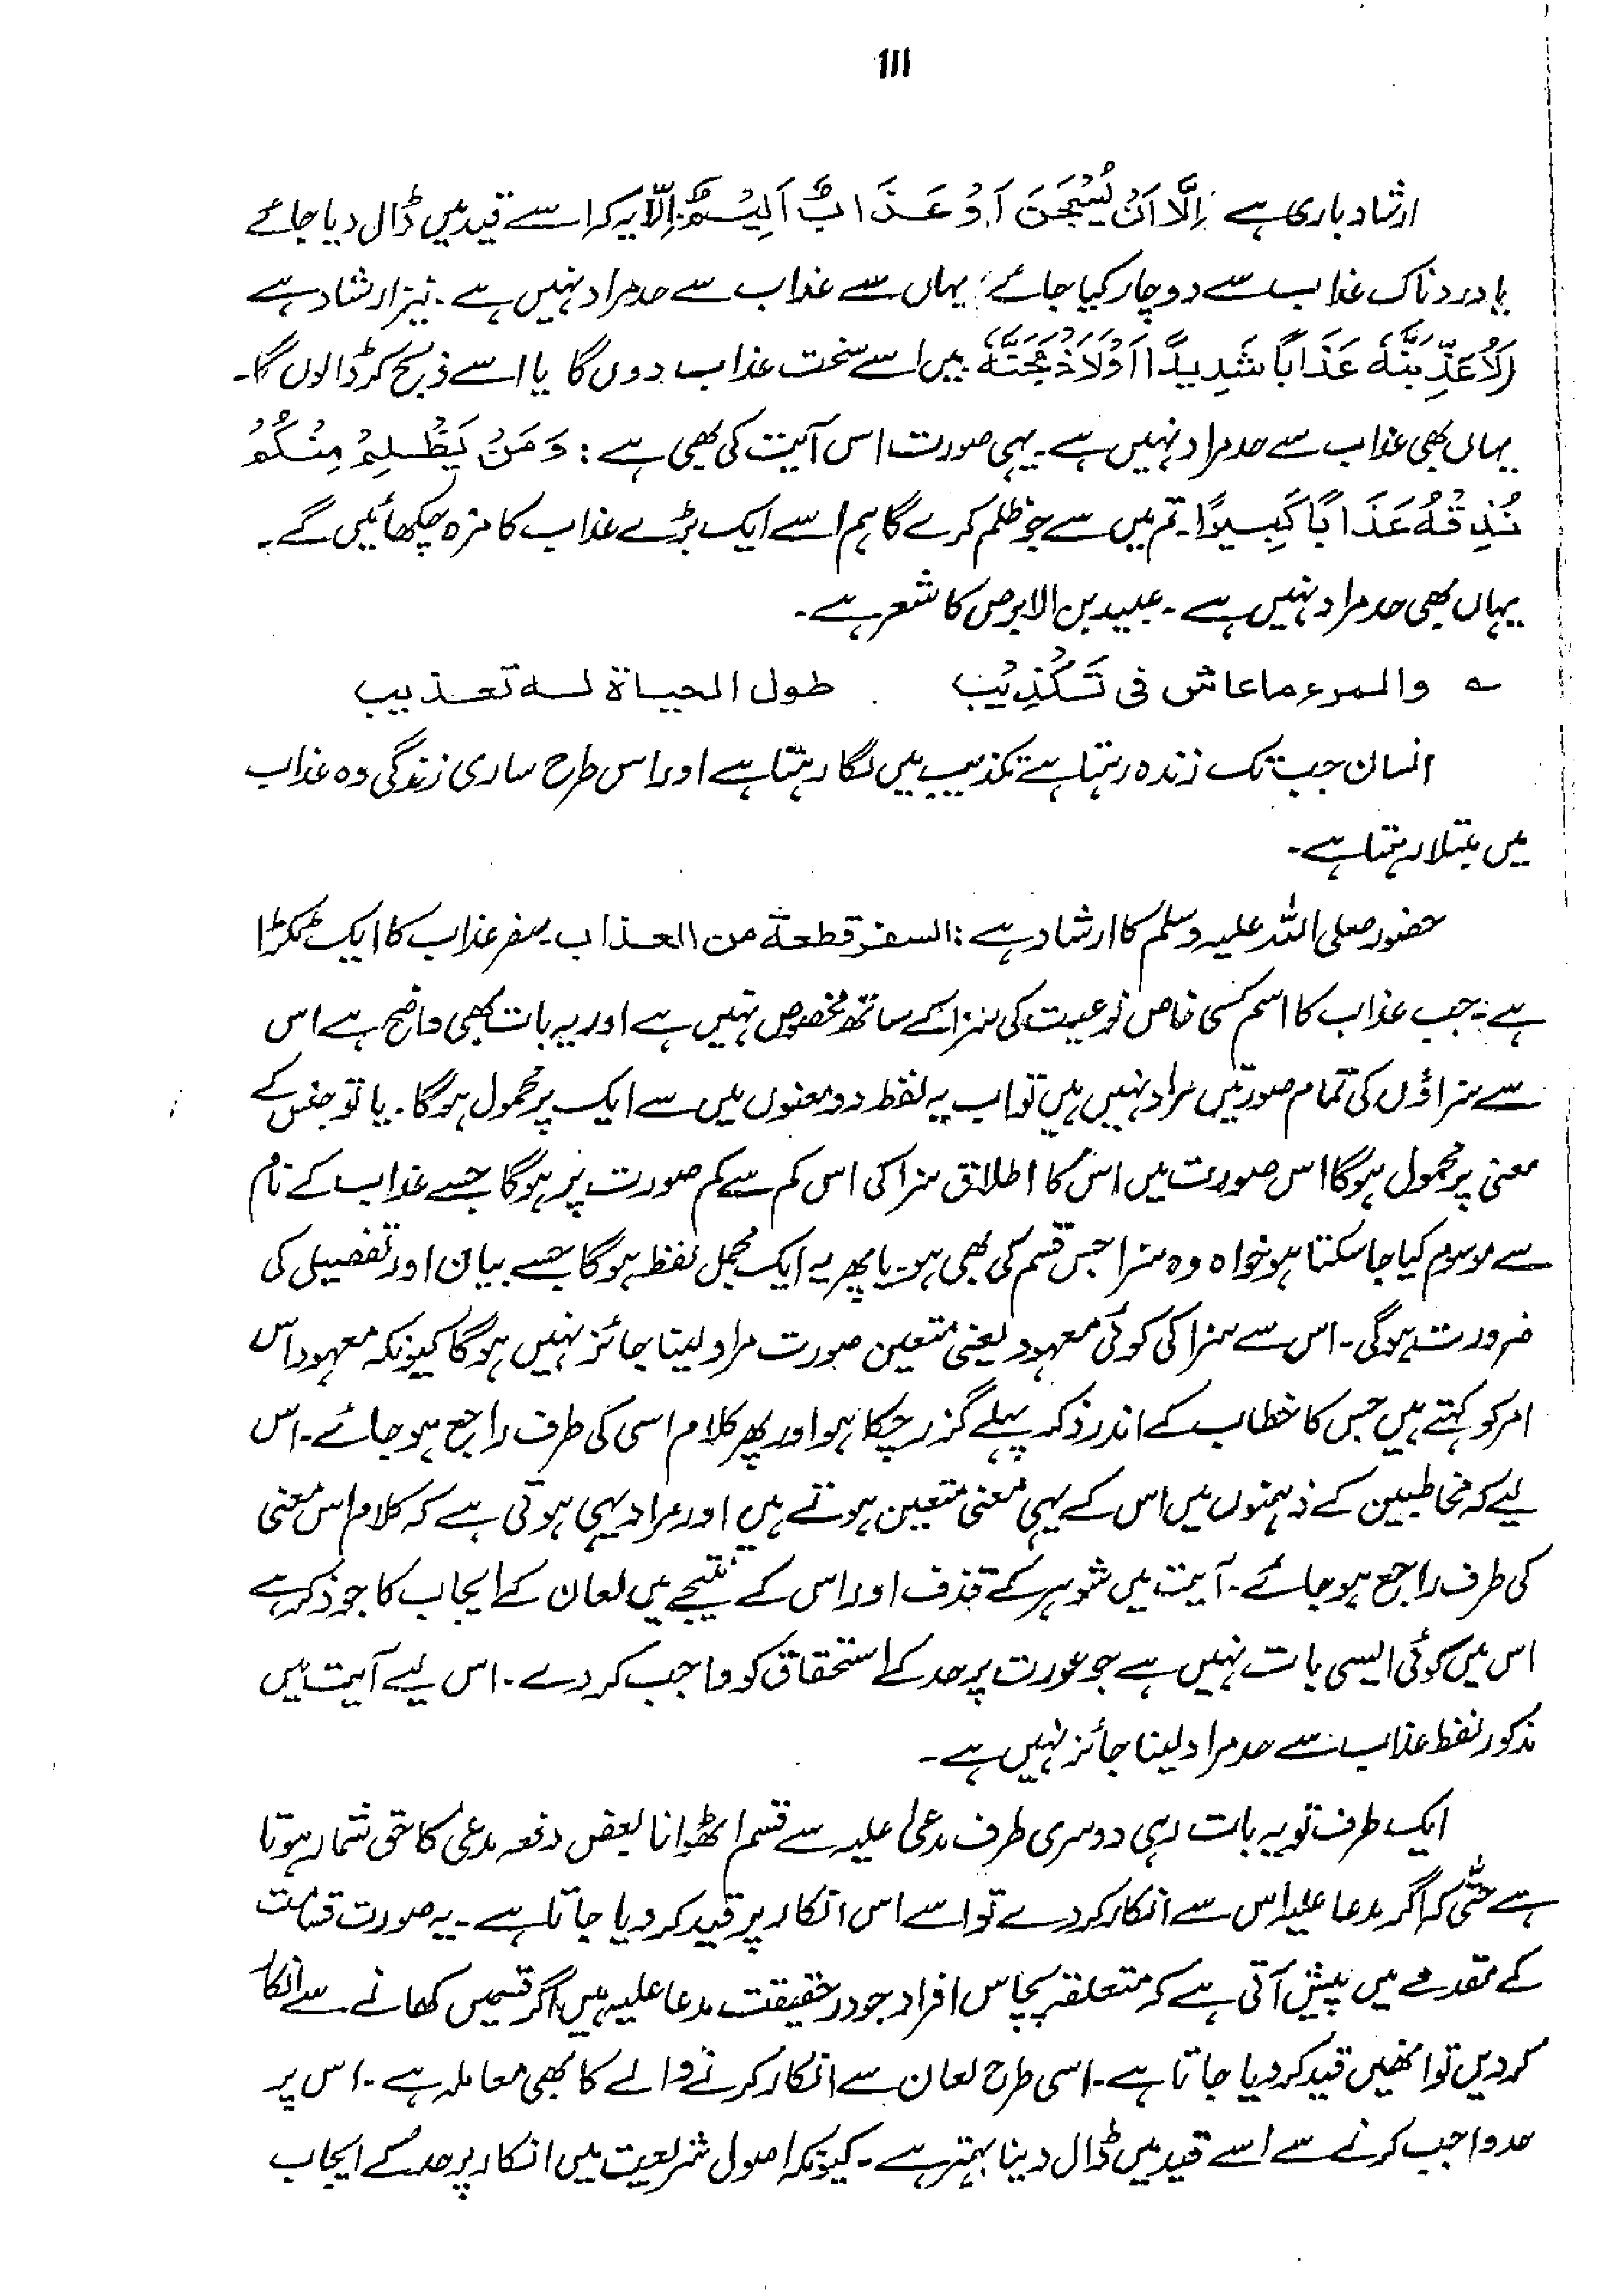 ۱۱۱
ارشاد باری ہے : اِلَّا اَنْ یُّسْجَنَ اَوْ عَذَابٌ اَلِیْمٌ: اِلّا یہ کہ اسے قید میں ڈال دیا جائے
یا دردناک عذاب سے دوچار کیا جائے: یہاں سے عذاب سے حد مراد نہیں ہے۔ نیز ارشاد ہے
(لَاُعَذِّبَنَّہٗ عَذَابًا شَدِیْدًا اَوْ لَاَذْبَحَنَّہٗ میں اسے سخت عذاب دوں گا یا اسے ذبح کر ڈالوں گا۔
یہاں بھی عذاب سے حد مراد نہیں ہے۔ یہی صورت اس آیت کی بھی ہے : وَمَنْ یَّظْلِمْ مِنْکُمْ
نُذِقْہُ عَذَابًا کَبِیْرًا۔ تم میں سے جو ظلم کرے گا ہم اسے ایک بڑے عذاب کا مزہ چکھائیں گے۔
یہاں بھی حد مراد نہیں ہے۔ عبید بن الابرص کا شعر ہے۔
؎ والمرء ما عاش فی تَکْذِیْبٍ طول الحیاۃ لہ تعذیب
انسان جب تک زندہ رہتا ہے تکذیب میں لگا رہتا ہے اور اس طرح ساری زندگی وہ عذاب
میں مبتلا رہتا ہے۔
حضور صلی اللہ علیہ وسلم کا ارشاد ہے : السفر قطعۃ من العذاب۔ سفر عذاب کا ایک ٹکڑا
ہے: جب عذاب کا اسم کسی خاص نوعیت کی سزا کے ساتھ مخصوص نہیں ہے اور یہ بات بھی واضح ہے اس
سے سزاؤں کی تمام صورتیں مراد نہیں ہیں تو اب یہ لفظ دو معنوں میں سے ایک پر محمول ہوگا۔ یا تو جنس کے
معنی پر محمول ہوگا اس صورت میں اس کا اطلاق سزا کی اس کم سے کم صورت پر ہوگا جسے عذاب کے نام
سے موسوم کیا جا سکتا ہو خواہ وہ سزا جس قسم کی بھی ہو۔ یا پھر یہ ایک مجمل لفظ ہوگا جسے بیان اور تفصیل کی
ضرورت ہوگی۔ اس سے سزا کی کوئی معہود یعنی متعین صورت مراد لینا جائز نہیں ہوگا کیونکہ معہود اس
امر کو کہتے ہیں جس کا خطاب کے اندر ذکر پہلے گزر چکا ہو اور پھر کلام اسی کی طرف راجع ہو جائے۔ اس
لیے کہ مخاطبین کے ذہنوں میں اس کے یہی معنی متعین ہوتے ہیں اور مراد یہی ہوتی ہے کہ کلام اس معنی
کی طرف راجع ہو جائے۔ آیت میں شوہر کے قذف اور اس کے نتیجے میں لعان کے ایجاب کا جو ذکر ہے
اس میں کوئی ایسی بات نہیں ہے جو عورت پر حد کے استحقاق کو واجب کر دے۔ اس لیے آیت میں
مذکور لفظ عذاب سے حد مراد لینا جائز نہیں ہے۔
ایک طرف تو یہ بات رہی دوسری طرف مدعیٰ علیہ سے قسم اٹھوانا بعض دفعہ مدعی کا حق شمار ہوتا
ہے حتّٰی کہ اگر مدعا علیہ اس سے انکار کر دے تو اسے اس انکار پر قید کر دیا جاتا ہے۔ یہ صورت قسامت
کے مقدمے میں پیش آتی ہے کہ متعلقہ پچاس افراد جو درحقیقت مدعا علیہ ہیں اگر قسمیں کھانے سے انکار
کر دیں تو انھیں قید کر دیا جاتا ہے۔ اسی طرح لعان سے انکار کرنے والے کا بھی معاملہ ہے۔ اس پر
حد واجب کرنے سے اسے قید میں ڈال دینا بہتر ہے۔ کیونکہ اصول شریعت میں انکار پر حد کے ایجاب